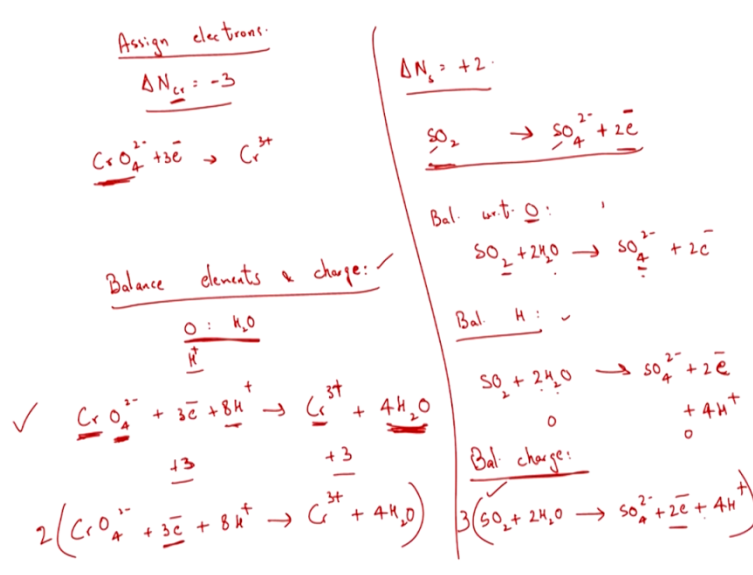 Assign electrons.
ΔN_Cr = -3
CrO₄²⁻ + 3e⁻ → Cr³⁺
Balance elements & charge: ✓
O : H₂O
H⁺
✓ CrO₄²⁻ + 3e⁻ + 8H⁺ → Cr³⁺ + 4H₂O
+3 +3
2(CrO₄²⁻ + 3e⁻ + 8H⁺ → Cr³⁺ + 4H₂O)
ΔN_s = +2.
SO₂ → SO₄²⁻ + 2e⁻
Bal. w.r.t. O :
SO₂ + 2H₂O → SO₄²⁻ + 2e⁻
Bal. H : ✓
SO₂ + 2H₂O → SO₄²⁻ + 2e⁻
+ 4H⁺
0 0
Bal. charge:
3(SO₂ + 2H₂O → SO₄²⁻ + 2e⁻ + 4H⁺)